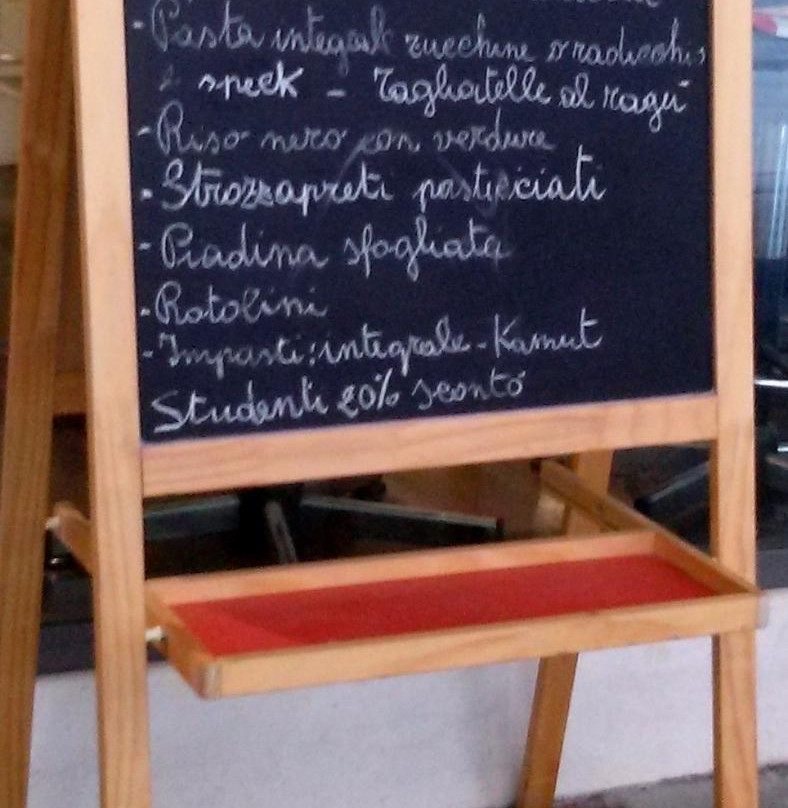 - Pasta integrale zucchine o radicchio
e speck - Tagliatelle al ragù
- Riso nero con verdure
- Strozzapreti pasticciati
- Piadina sfogliata
- Rotolini
- Impasti: integrale - Kamut
Studenti 20% sconto